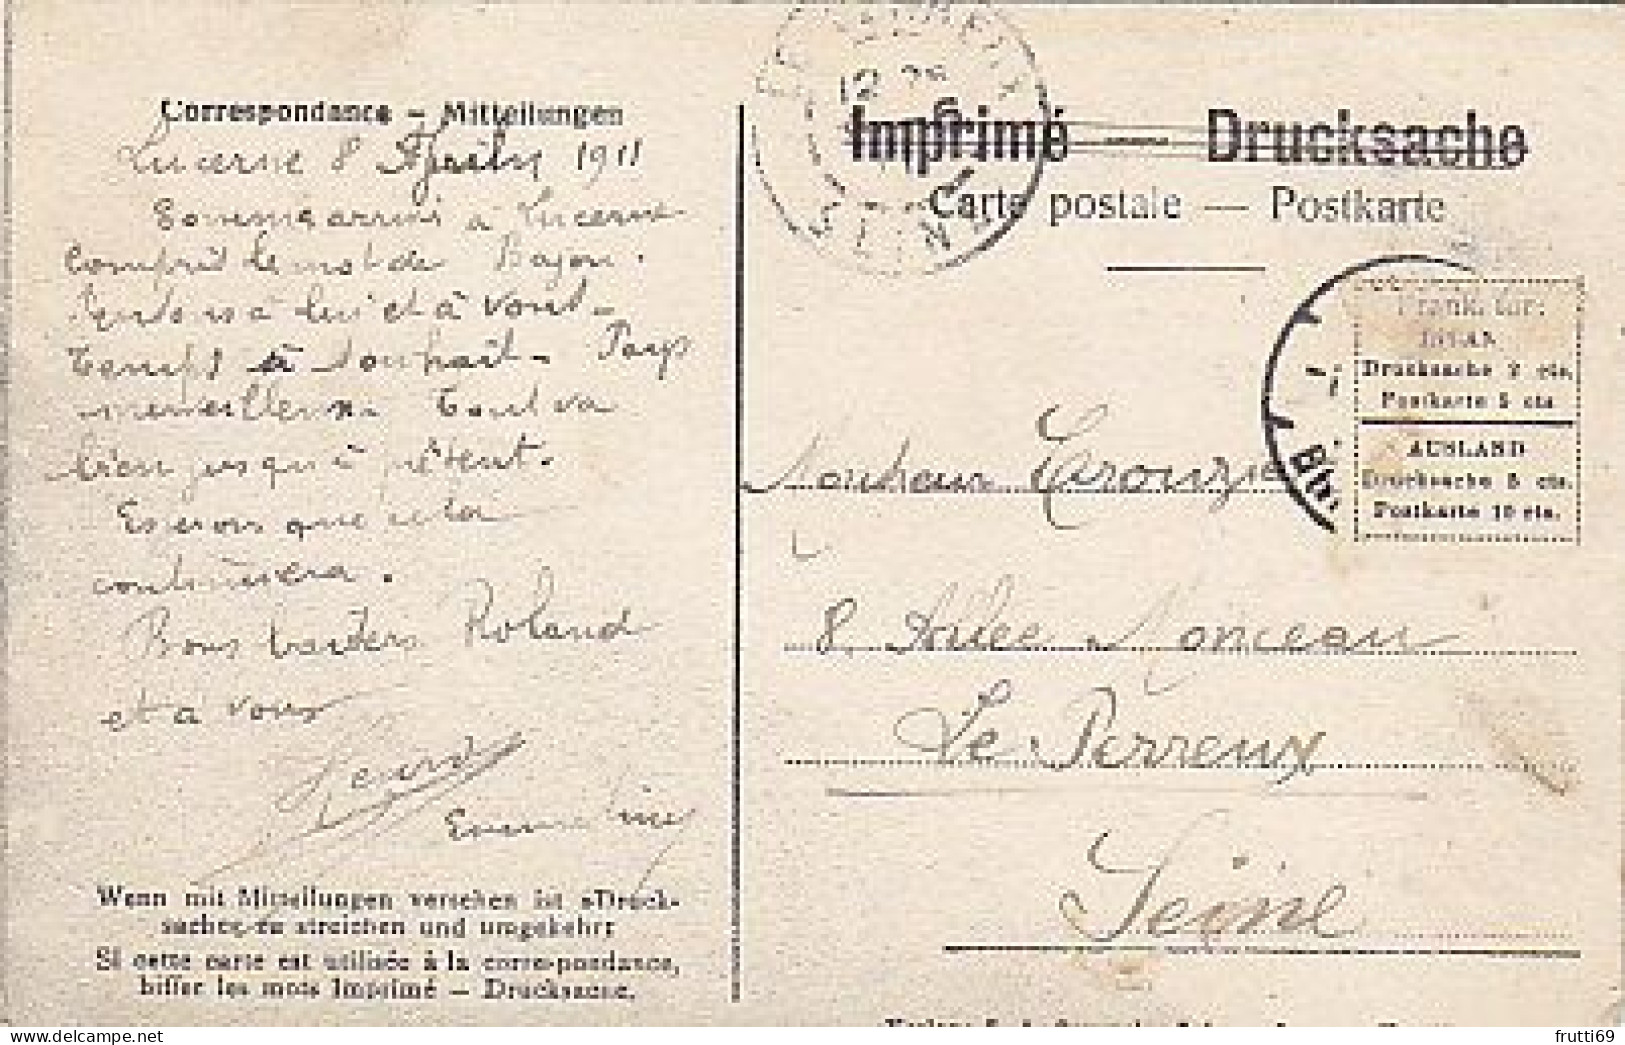 Correspondance – Mitteilungen
Lucerne 8 1911
Sommes arrivés à Lucerne
Compris le mot de
à lui et à vous.
Temps à souhait. Pays
merveilleux. Tout va
bien jusqu'à présent.
Esperons que cela
continuera.
Bons baisers Roland
et à vous
Imprimé — Drucksache
Carte postale — Postkarte
Frank. für:
INLAND
Drucksache 2 cts.
Postkarte 5 cts
AUSLAND
Drucksache 5 cts.
Postkarte 10 cts.
Monsieur
8. Allée Monceau
Le Perreux
Seine
Wenn mit Mitteilungen versehen ist »Druck-
sache« zu streichen und umgekehrt
Si cette carte est utilisée à la correspondance,
biffer les mots Imprimé — Drucksache.
www.delcampe.net
frutti69